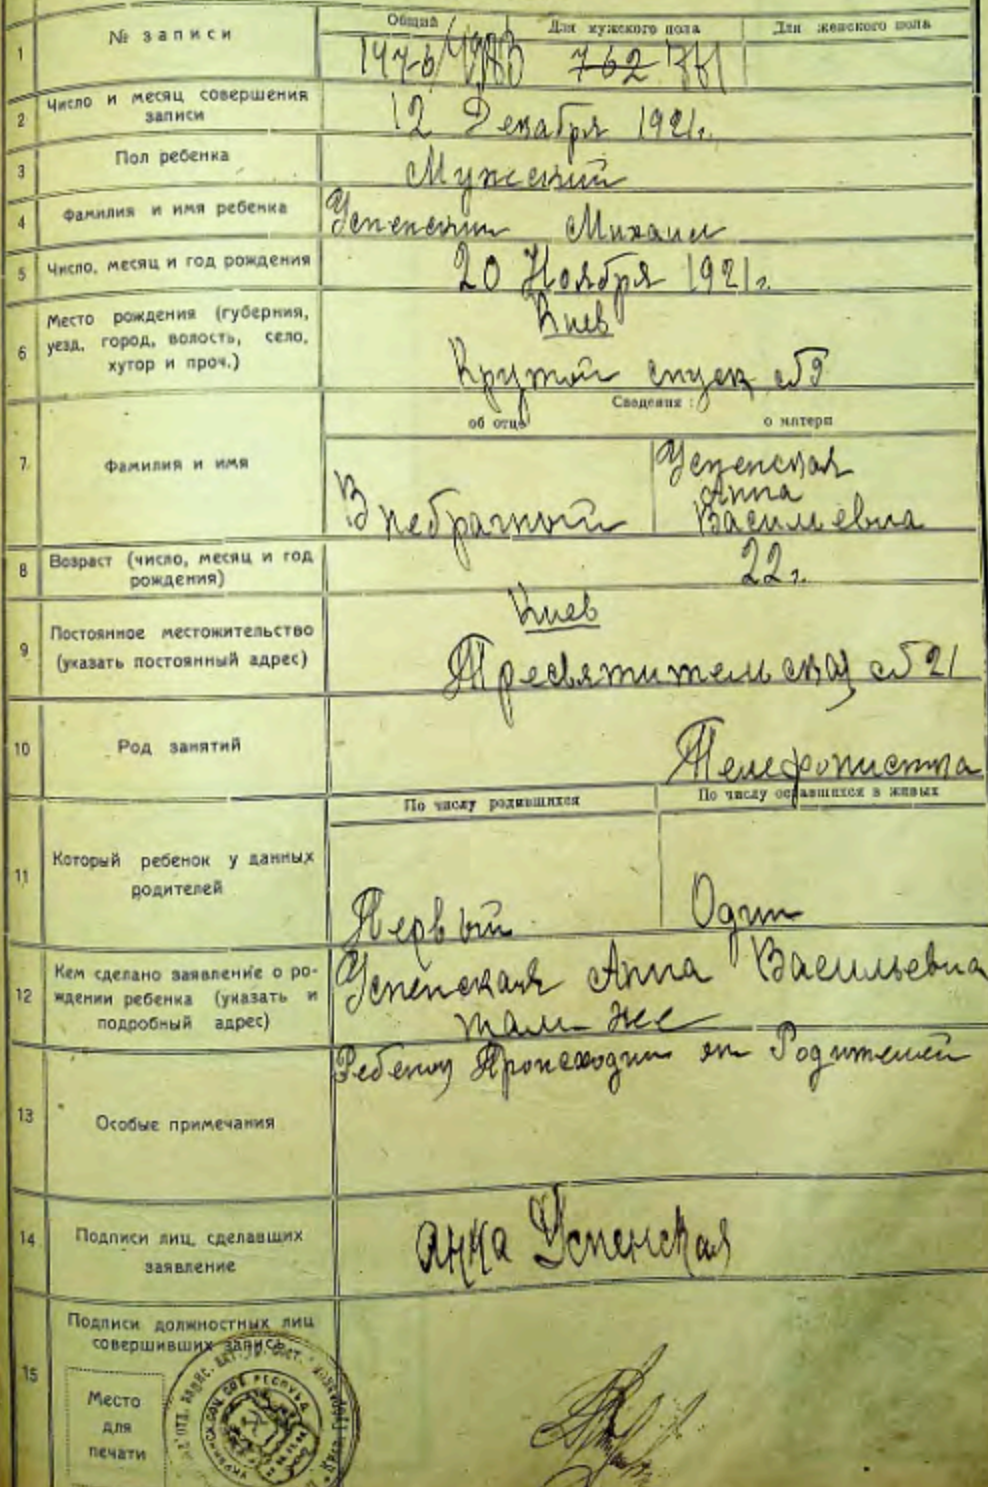 1 № записи
Общий Для мужского пола Для женского пола
762
2 Число и месяц совершения
записи
12 Декабря 1921г.
3 Пол ребенка Мужский
4 Фамилия и имя ребенка Успенский Михаил
5 Число, месяц и год рождения 20 Ноября 1921г.
6 Место рождения (губерния,
уезд, город, волость, село,
хутор и проч.)
Киев
Крутой спуск №9
Сведения:
об отце о матери
7 Фамилия и имя
Внебрачный
Успенская
Анна
Васильевна
8 Возраст (число, месяц и год
рождения)
22г.
9 Постоянное местожительство
(указать постоянный адрес)
Киев
Тресвятительская №21
10 Род занятий Телефонистка
По числу родившихся По числу оставшихся в живых
11 Который ребенок у данных
родителей
Первый Один
12 Кем сделано заявление о ро-
ждении ребенка (указать и
подробный адрес)
Успенская Анна Васильевна
там-же
13 Особые примечания
Ребенок Происходит от Родителей
14 Подписи лиц, сделавших
заявление
Анна Успенская
15 Подписи должностных лиц
совершивших запись
Место
для
печати